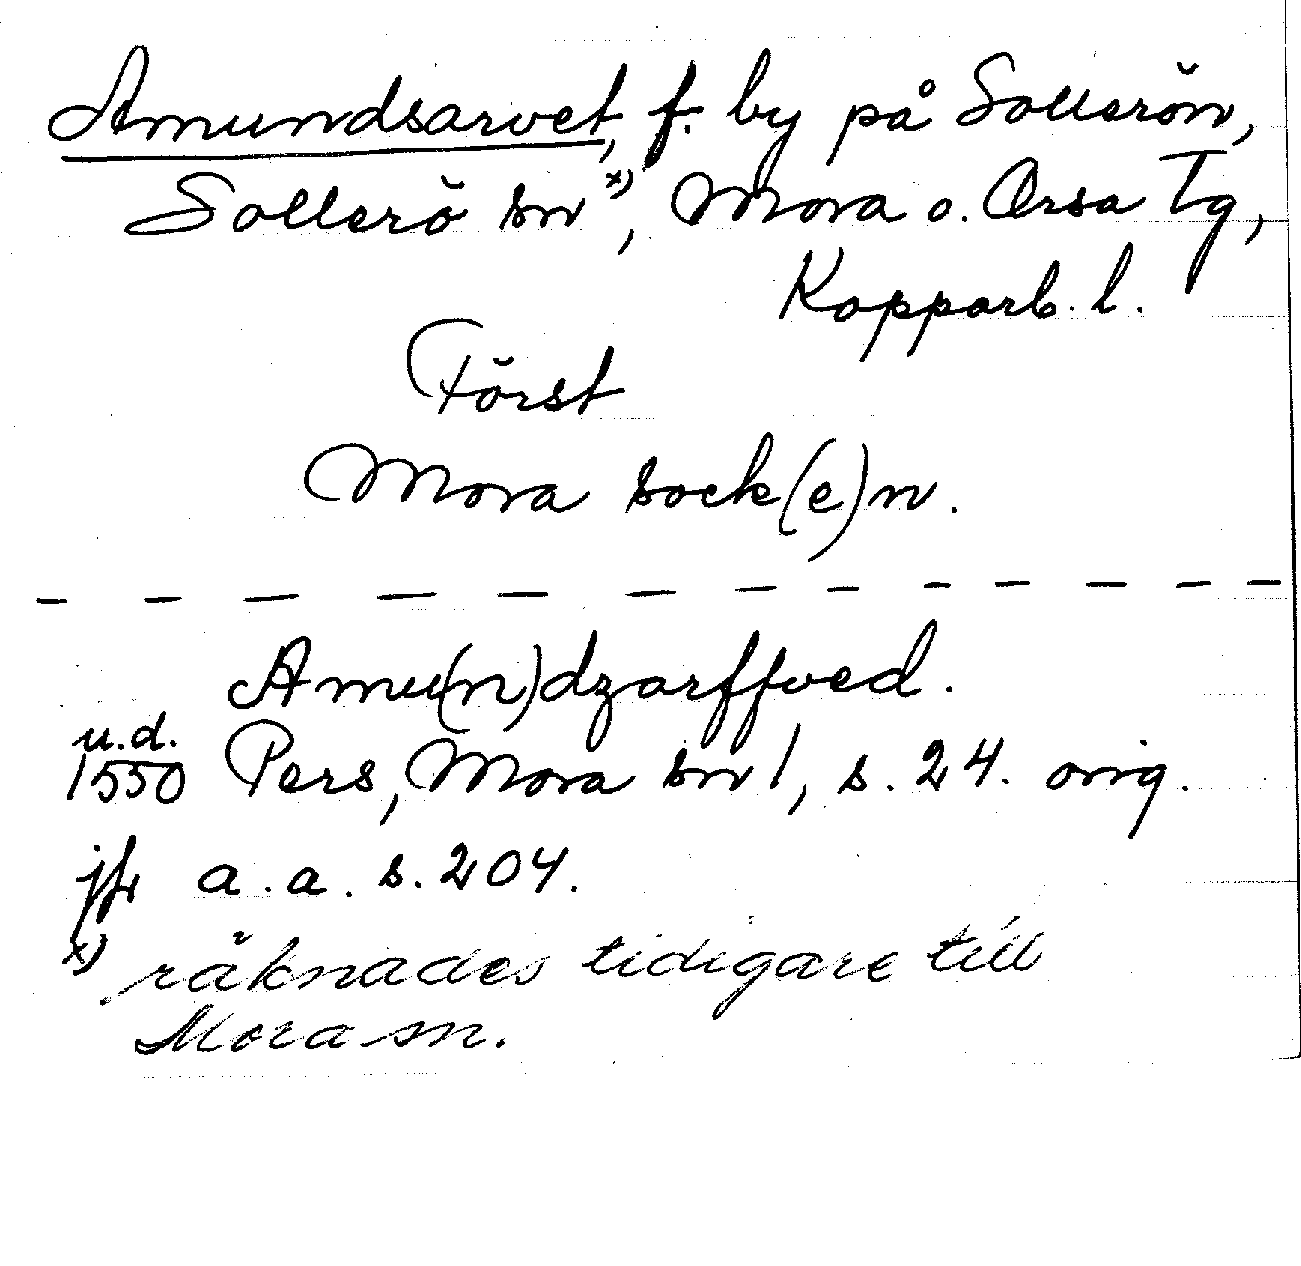 Amundsarvet, f. by på Sollerön,
Sollerö sn x), Mora o. Orsa Tg,
Kopparb. l.
Först
Mora sock(e)n.
Amu(n)dzarffved.
u.d.
1550 Pers, Mora sn 1, s. 24. orig.
jfr a.a. s. 204.
x) räknades tidigare till
Mora sn.